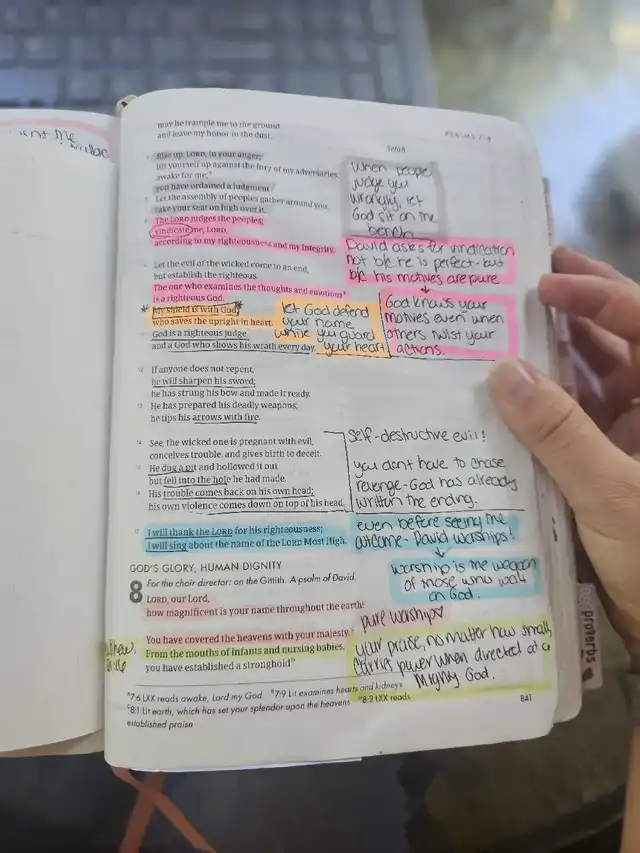 isnt me
may he trample me to the ground
and leave my honor in the dust.
Selah
PSALMS 7–8
Rise up, LORD, in your anger;
lift yourself up against the fury of my adversaries;
awake for me;
you have ordained a judgment
Let the assembly of peoples gather around you;
take your seat on high over it.
The LORD judges the peoples;
vindicate me, LORD,
according to my righteousness and my integrity.
When people
judge you
wrongly, let
God sit on the
bench
David asks for vindication
not b/c he is perfect - but
b/c his motives are pure
Let the evil of the wicked come to an end,
but establish the righteous.
The one who examines the thoughts and emotions
is a righteous God.
My shield is with God,
who saves the upright in heart.
God is a righteous judge
and a God who shows his wrath every day.
let God defend
your name
while you guard
your heart
God knows your
motives even when
others twist your
actions.
12 If anyone does not repent,
he will sharpen his sword;
he has strung his bow and made it ready.
13 He has prepared his deadly weapons;
he tips his arrows with fire.
14 See, the wicked one is pregnant with evil,
conceives trouble, and gives birth to deceit.
15 He dug a pit and hollowed it out
but fell into the hole he had made.
16 His trouble comes back on his own head;
his own violence comes down on top of his head.
self-destructive evil!
you dont have to chase
revenge - God has already
written the ending.
17 I will thank the LORD for his righteousness;
I will sing about the name of the LORD Most High.
even before seeing the
outcome - David worships!
worship is the weapon
of those who wait
on God.
GOD'S GLORY, HUMAN DIGNITY
8 For the choir director: on the Gittith. A psalm of David.
LORD, our Lord,
how magnificent is your name throughout the earth!
pure worship
You have covered the heavens with your majesty.
From the mouths of infants and nursing babies,
you have established a stronghold
your praise, no matter how small,
carries power when directed at a
Mighty God.
7:6 LXX reads awake, Lord my God 7:9 Lit examines hearts and kidneys
8:1 Lit earth, which has set your splendor upon the heavens 8:2 LXX reads
established praise
841
proverbs